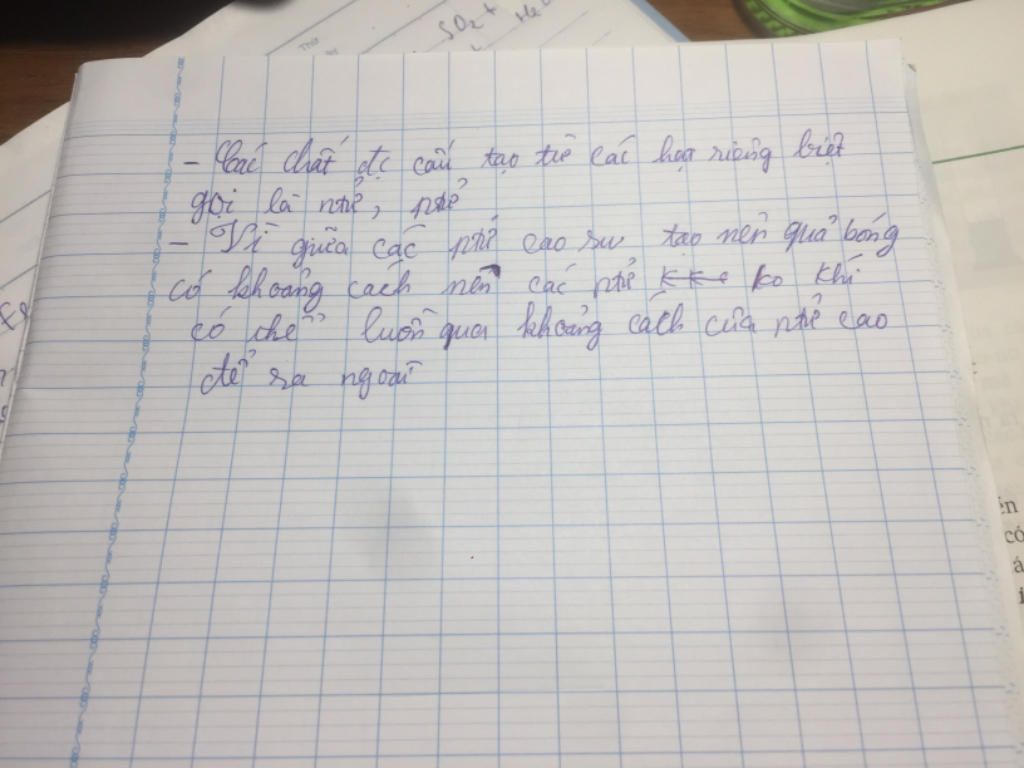 SO2 +
H2
Thứ
- Các chất đc cấu tạo từ các hạt riêng biệt
gọi là ntử, ptử
- Vì giữa các ptử cao su tạo nên quả bóng
có khoảng cách nên các ptử ko khí
có thể luồn qua khoảng cách của ptử cao
để ra ngoài
có